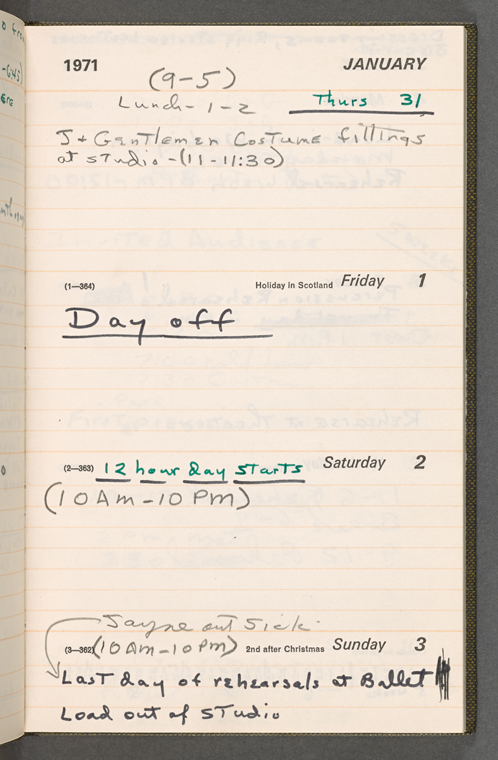 1971 JANUARY
(9-5)
Lunch - 1-2 Thurs 31
J + Gentlemen Costume fittings
at studio - (11-11:30)
(1—364) Holiday in Scotland Friday 1
Day off
(2—363) 12 hour day starts Saturday 2
(10 Am - 10 Pm)
Jayne out sick.
(3—362) (10 Am - 10 Pm) 2nd after Christmas Sunday 3
Last day of rehearsals at Ballet
Load out of studio